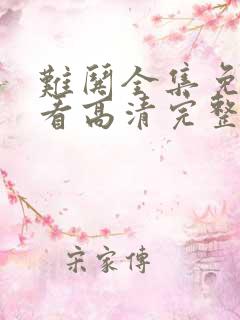 難関全集免
看高清完整
宋家傳